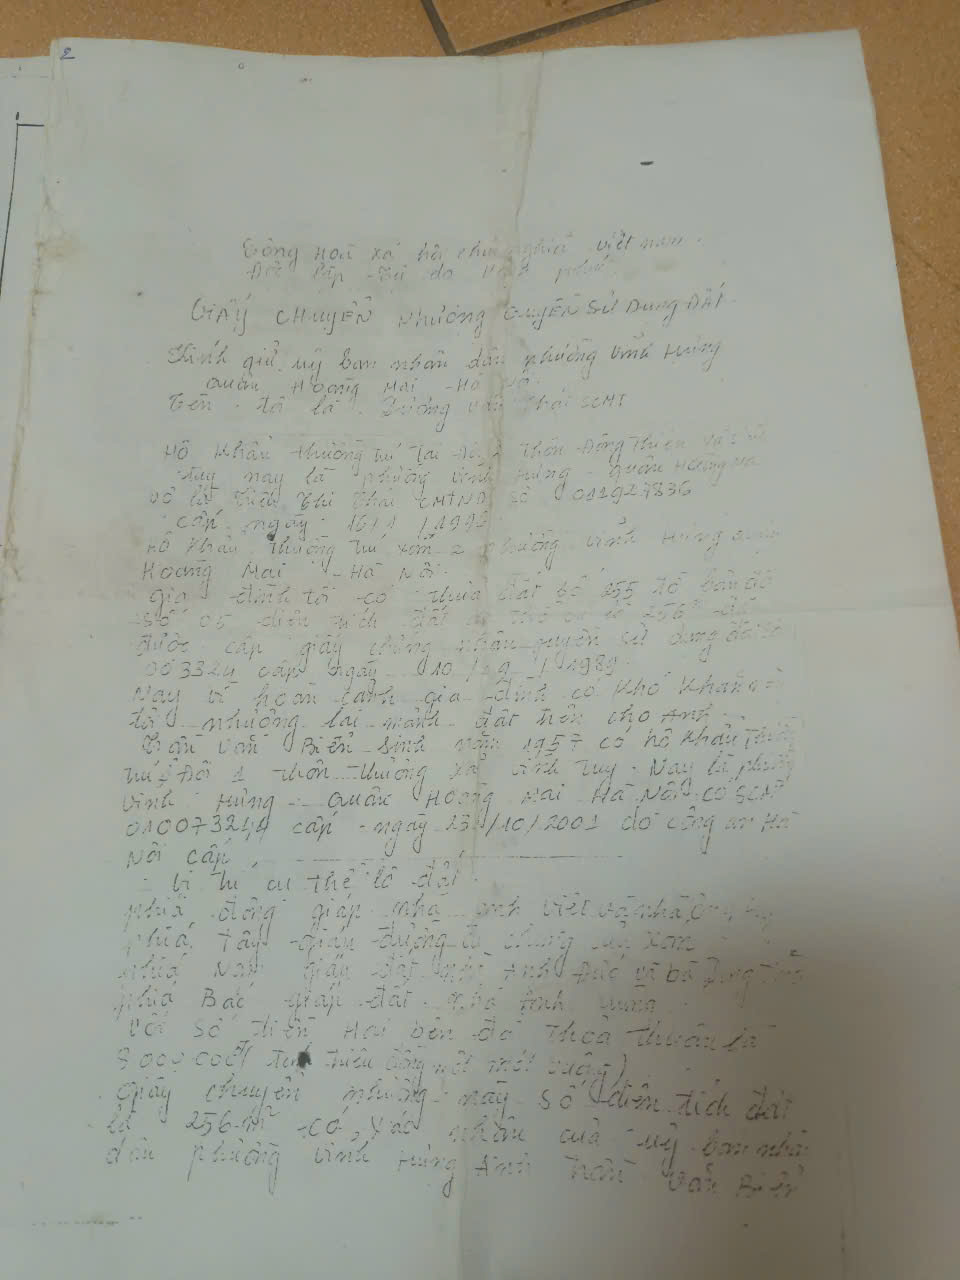 2
Cộng Hoà Xã hội chủ nghĩa việt nam
Độc lập - Tự do phúc
GIẤY CHUYỂN NHƯỢNG QUYỀN SỬ DỤNG ĐẤT
Kính gửi uỷ ban nhân dân phường Vĩnh Hưng
quận Hoàng Mai - Hà Nội
Tên tôi là Dương Văn SCMT
Hộ khẩu thường trú tại thôn Đông Thiên
tuy nay là phường Vĩnh Hưng - quận Hoàng Mai
Vợ là Thị Thái CMTND số 011927836
cấp ngày 16/1/1996
Hộ khẩu thường trú xóm 2 phường Vĩnh Hưng quận
Hoàng Mai - Hà Nội
gia đình tôi có thửa đất số 255 tờ bản đồ
số 05 diện tích đất 256
được cấp giấy chứng nhận quyền sử dụng đất số
003324 cấp ngày 10/ 9/1989
Nay vì hoàn cảnh gia đình có khó khăn
tôi nhượng lại mảnh đất trên cho Anh
Trần Văn Biển sinh năm 1957 có hộ khẩu thường
trú Đội 1 thôn thượng xã Vĩnh Tuy. Nay là phường
Vĩnh Hưng - quận Hoàng Mai Hà Nội có SCMT
010073244 cấp ngày 23/10/2001 do công an Hà
Nội cấp
Vị trí cụ thể lô đất
phía đông giáp nhà anh Việt và nhà
phía tây giáp đường đi chung của xóm
phía Nam giáp đất nhà Anh Đức và bà
phía Bắc giáp đất nhà Anh
với số tiền Hai bên đã Thoả thuận là
8 000 000đ triệu đồng một mét vuông)
Giấy chuyển nhượng này số diện tích đất
là 256m² có xác nhận của uỷ ban nhân
dân phường Vĩnh Hưng Anh Trần Văn Biển